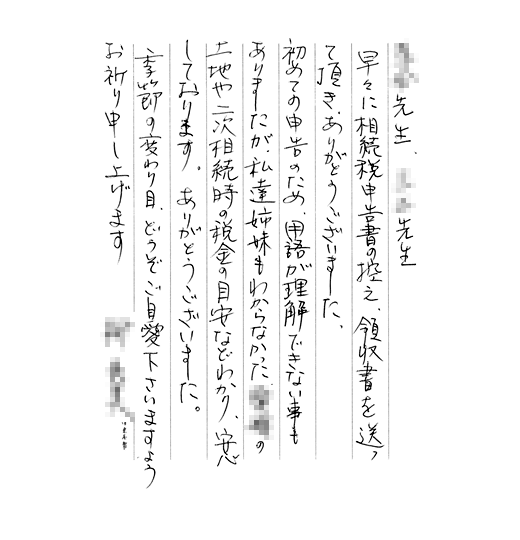 先生、先生
早々に相続税申告書の控え、領収書を送っ
て頂き、ありがとうございました、
初めての申告のため、用語が理解できない事も
ありましたが、私達姉妹もわからなかったの
土地や二次相続時の税金の目安などわかり、安心
しております。ありがとうございました。
季節の変わり目、どうぞご自愛下さいますよう
お祈り申し上げます